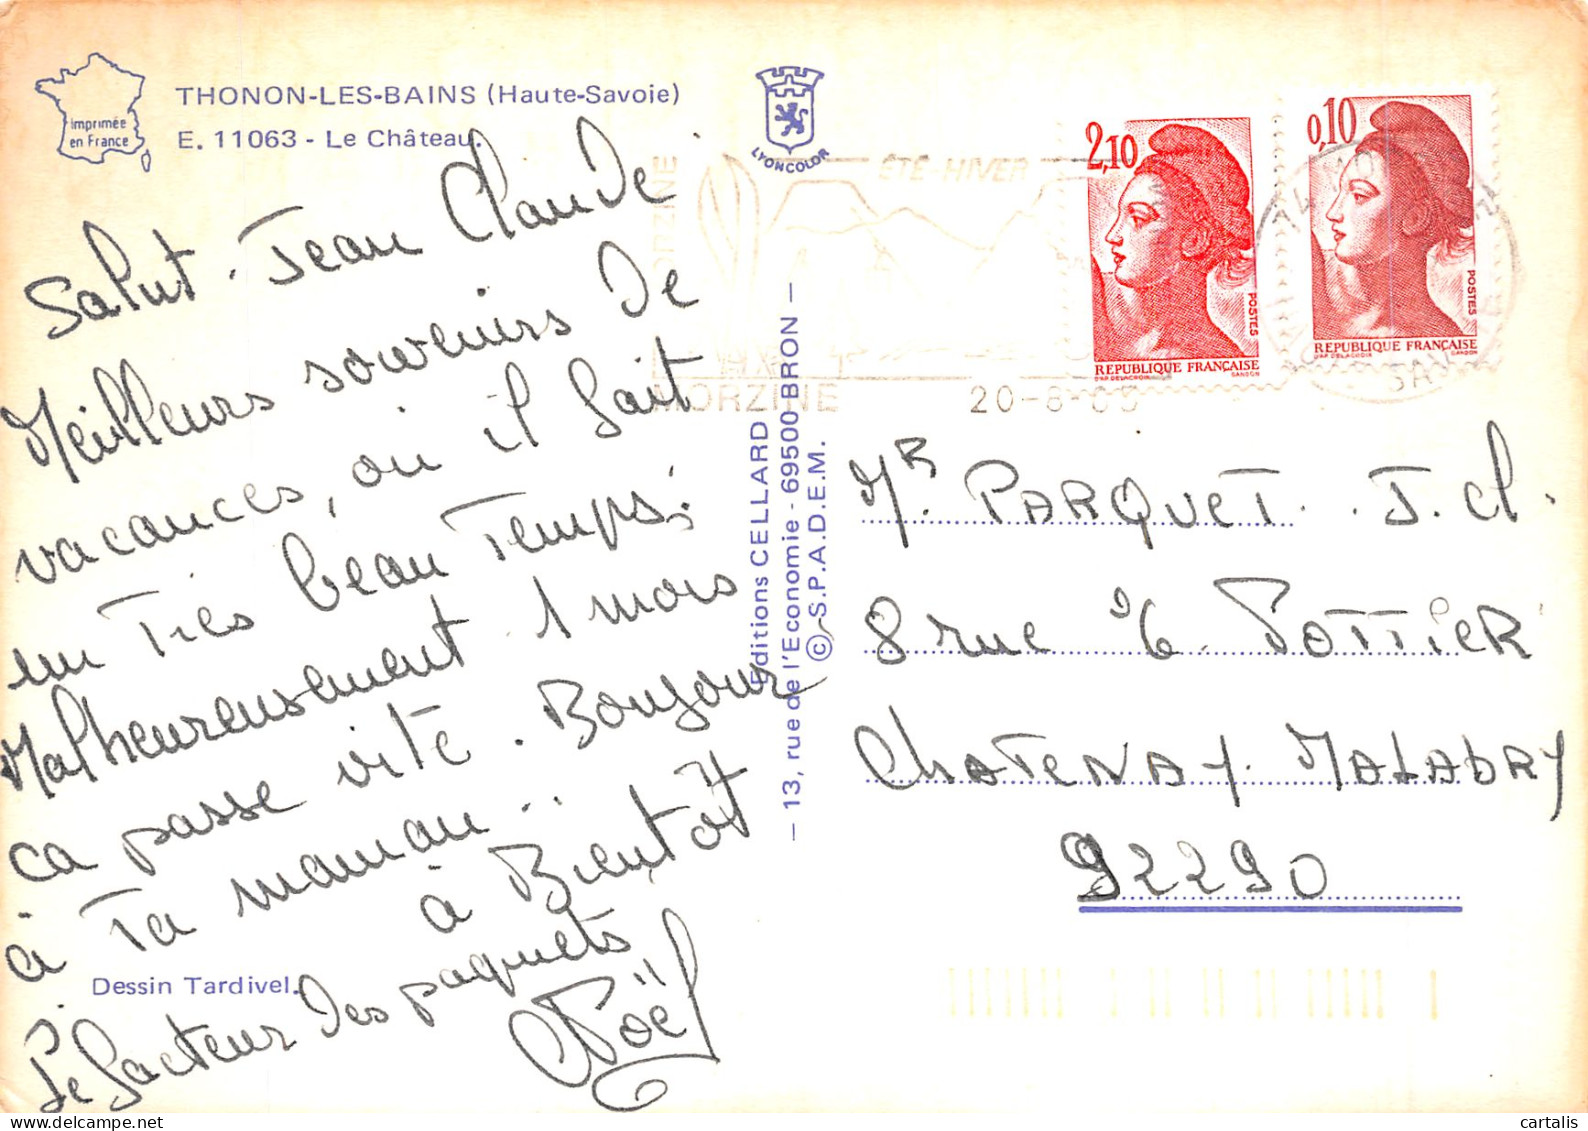 imprimée
en France
THONON-LES-BAINS (Haute-Savoie)
E. 11063 - Le Château.
LYONCOLOR
Salut . Jean Claude
Meilleurs souvenirs de
vacances, ou il fait
un Très beau Temps.
Malheureusement 1 mois
ca passe vite . Bonjour
à Ta maman...
à Bientot
Le facteur des paquets
Noël
Dessin Tardivel.
Editions CELLARD
— 13, rue de l'Economie - 69500 BRON —
© S.P.A.D.E.M.
MORZINE
ÉTÉ-HIVER
MORZINE
20-8-
2,10
POSTES
REPUBLIQUE FRANÇAISE
D'AP DELACROIX GANDON
0,10
POSTES
REPUBLIQUE FRANÇAISE
D'AP DELACROIX GANDON
74
Mr. PARQUET . J. Cl.
8 rue E. POTTIER
CHATENAY. MALABRY
92290
cartalis